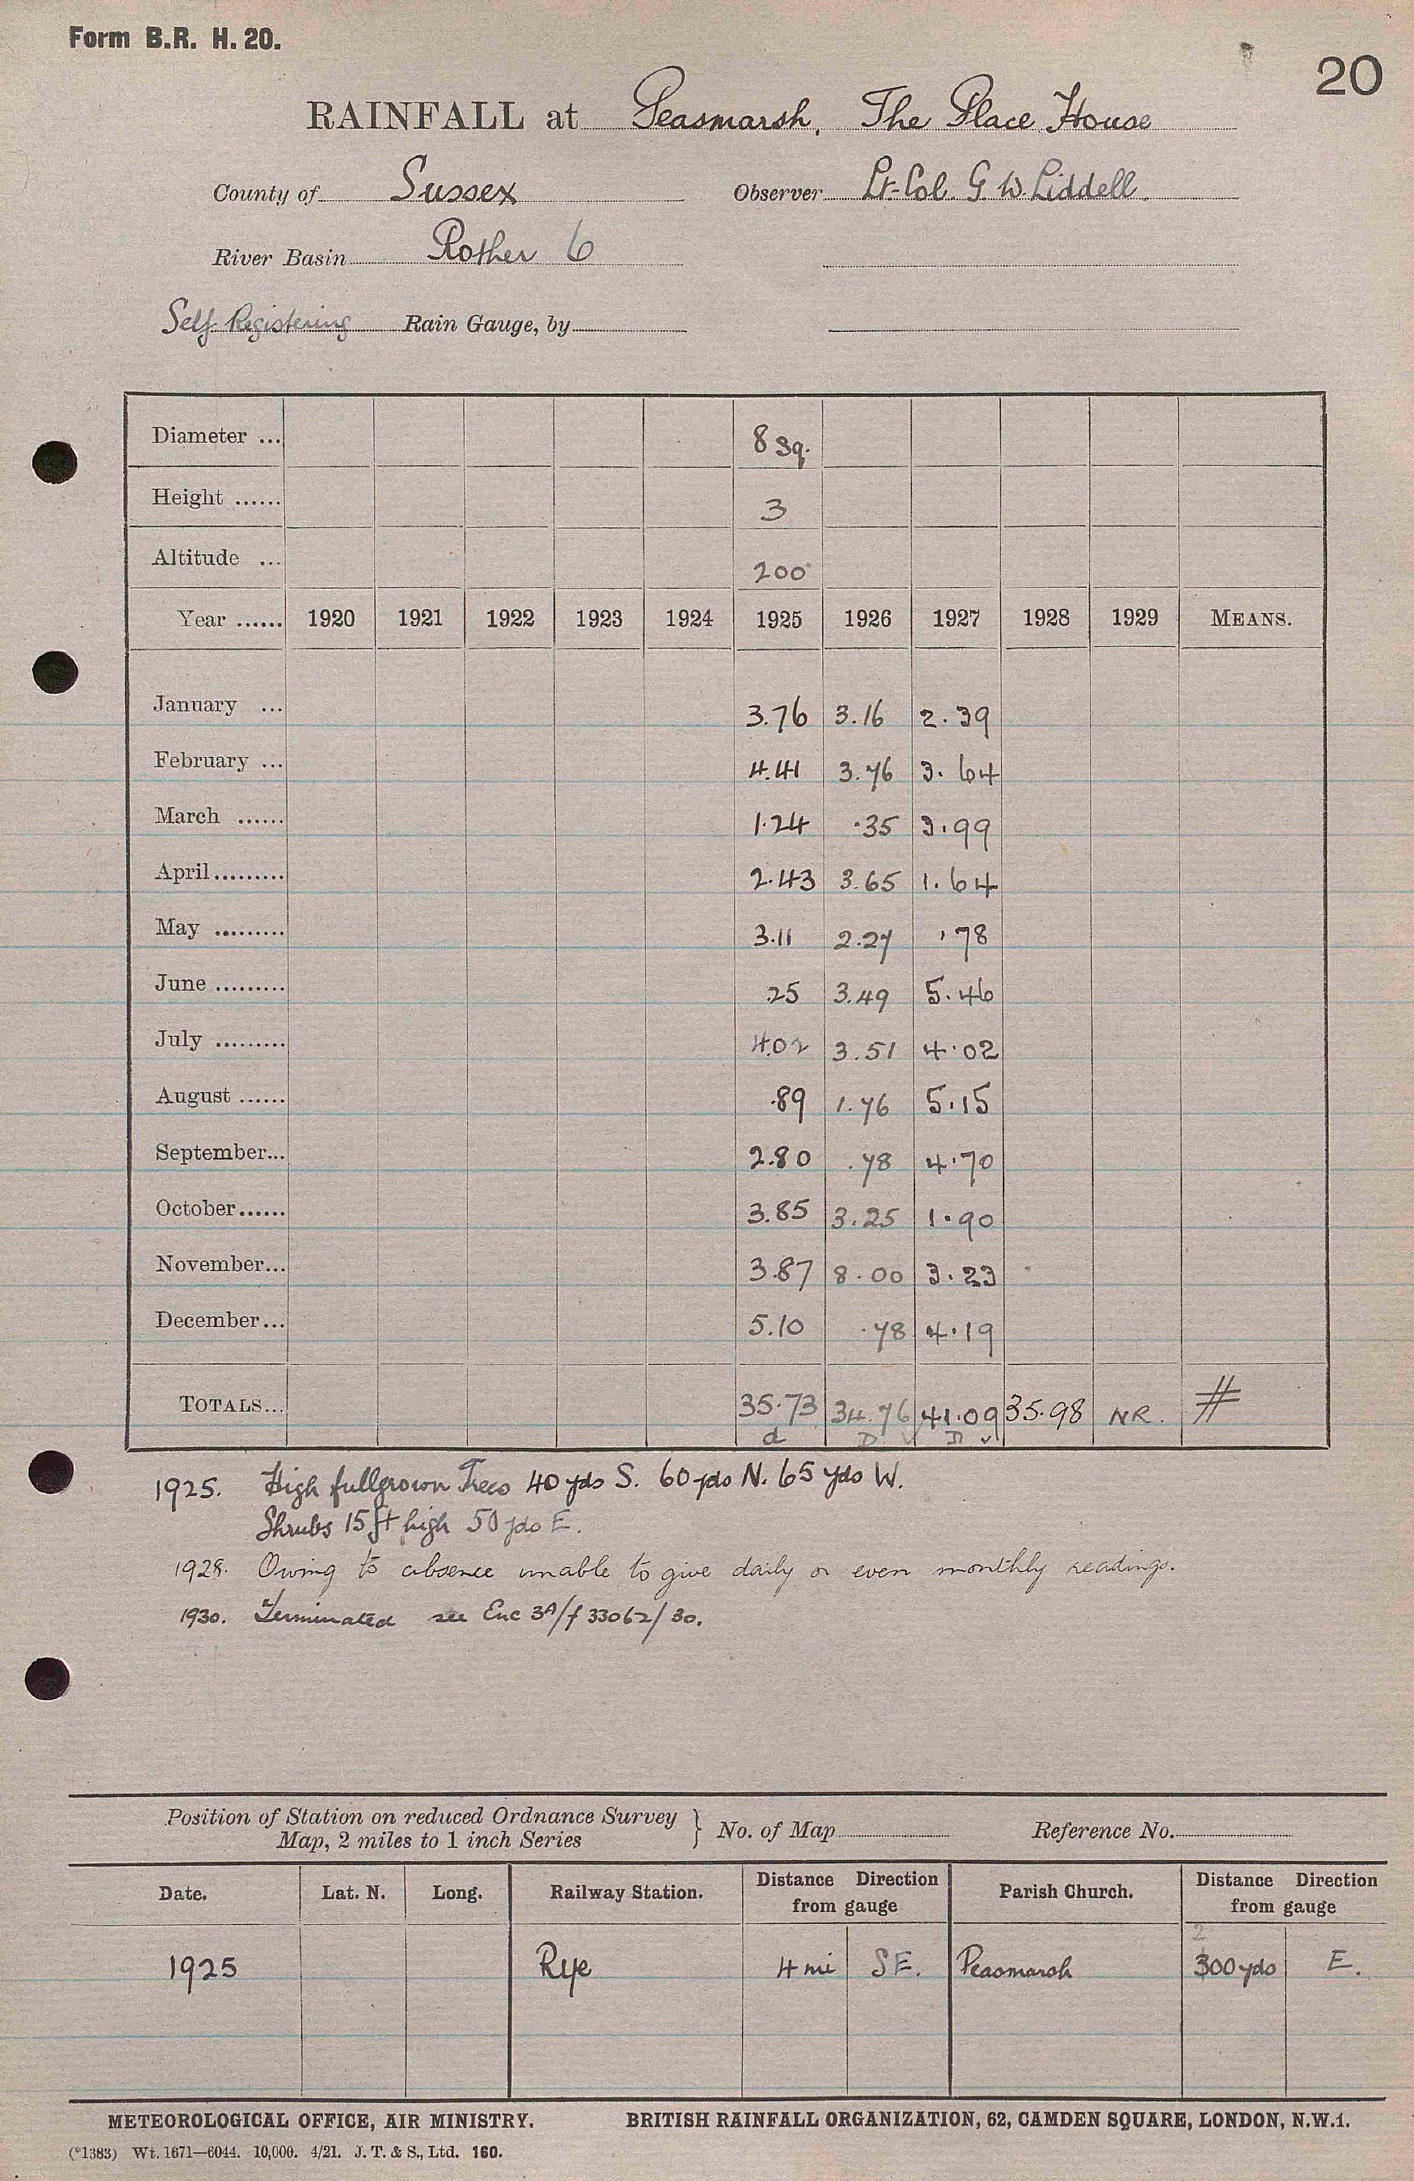 Form B.R. H. 20.
20
RAINFALL at Peasmarsh, The Place House
County of Sussex Observer Lt-Col. G. W. Liddell.
River Basin Rother 6
Self Registering Rain Gauge, by
Diameter ... 8 sq.
Height ...... 3
Altitude ... 200
Year ...... 1920 1921 1922 1923 1924 1925 1926 1927 1928 1929 MEANS.
January ... 3.76 3.16 2.39
February ... 4.41 3.76 3.64
March ...... 1.24 .35 3.99
April ......... 2.43 3.65 1.64
May ......... 3.11 2.27 .78
June ......... .25 3.49 5.46
July ......... 4.02 3.51 4.02
August ...... .89 1.76 5.15
September... 2.80 .78 4.70
October...... 3.85 3.25 1.90
November... 3.87 8.00 3.23
December... 5.10 .78 4.19
TOTALS... 35.73 34.76 41.09 35.98 NR. #
d D ✓ D ✓
1925. High fullgrown Trees 40 yds S. 60 yds N. 65 yds W.
Shrubs 15 ft high 50 yds E.
1928. Owing to absence unable to give daily or even monthly readings.
1930. Terminated see Enc 3A/f 33062/30.
Position of Station on reduced Ordnance Survey
Map, 2 miles to 1 inch Series } No. of Map Reference No.
Date. Lat. N. Long. Railway Station. Distance Direction from gauge Parish Church. Distance Direction from gauge
2
1925 Rye 4 mi SE. Peasmarsh 300 yds E.
METEOROLOGICAL OFFICE, AIR MINISTRY. BRITISH RAINFALL ORGANIZATION, 62, CAMDEN SQUARE, LONDON, N.W.1.
(*1383) Wt. 1671—6044. 10,000. 4/21. J. T. & S., Ltd. 160.